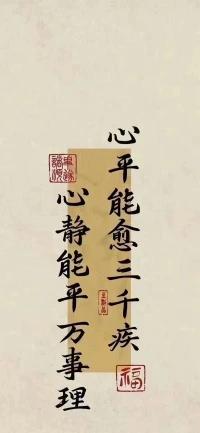 心平能愈三千疾
心静能平万事理
福